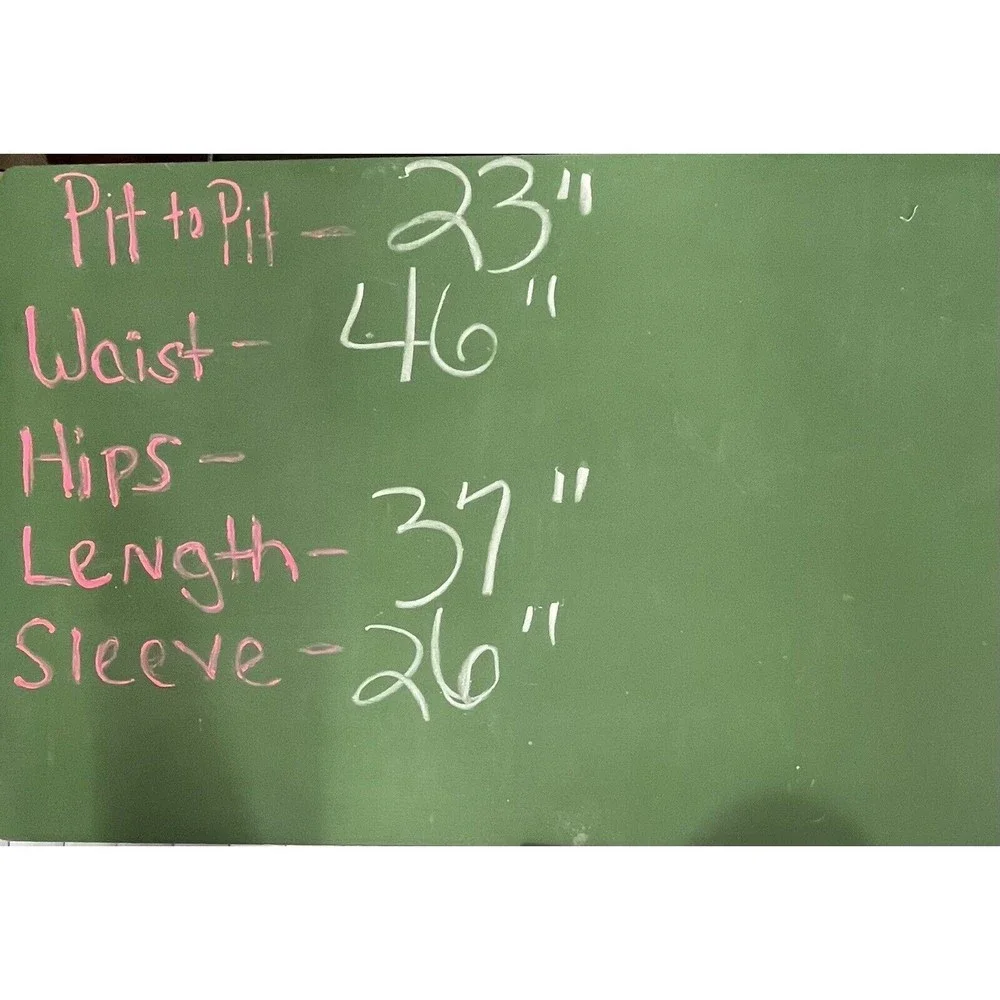 Pit to Pit - 23"
Waist - 46"
Hips -
Length - 37"
Sleeve - 26"